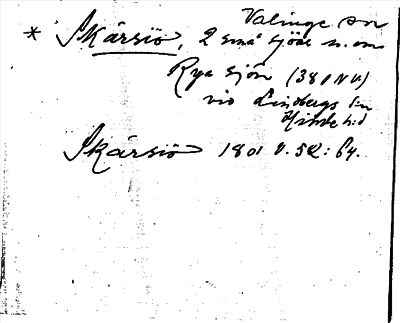 Valinge sn
* Skärsiö, 2 små sjöar n. om
Rya sjön (38 1 NV.)
vid Lindbergs l:n
Himle h:d
Skärsiö 1801 V. 52: 64.